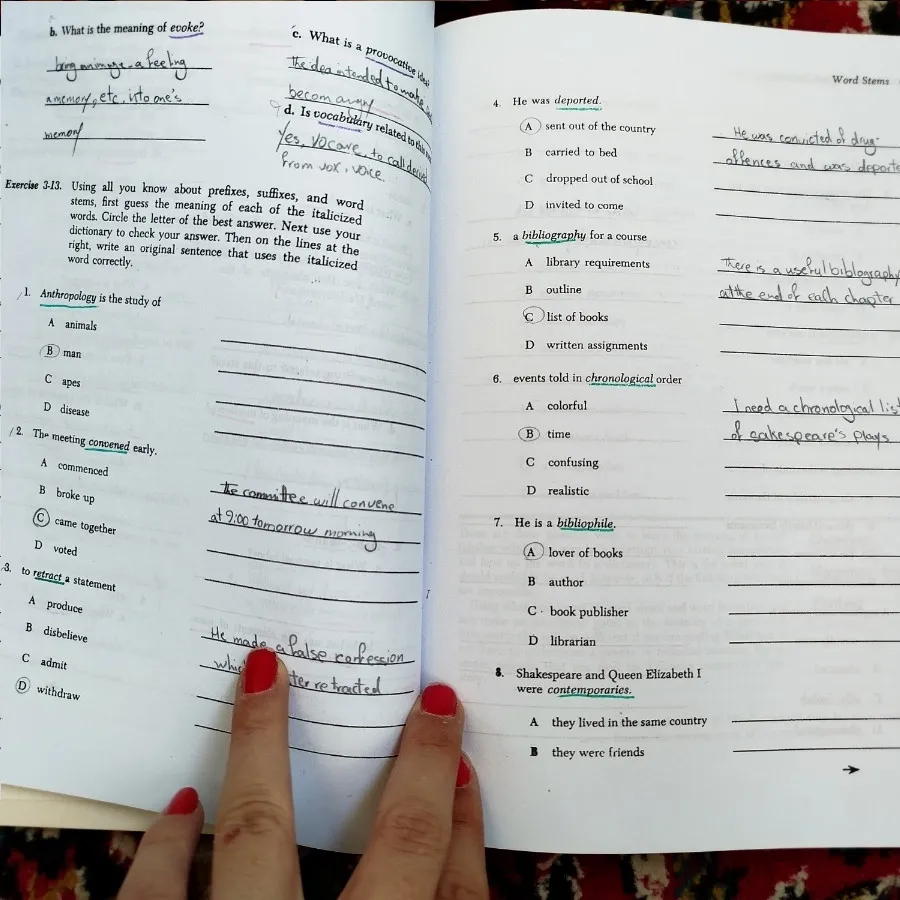 b. What is the meaning of evoke?
bring an image, a feeling
a memory, etc, into one's
memory
c. What is a provocative
The idea intended to make
becom angry
d. Is vocabulary related to this
Yes, vocare, to call
From vox, voice.
Exercise 3-13. Using all you know about prefixes, suffixes, and word
stems, first guess the meaning of each of the italicized
words. Circle the letter of the best answer. Next use your
dictionary to check your answer. Then on the lines at the
right, write an original sentence that uses the italicized
word correctly.
1. Anthropology is the study of
A animals
B man
C apes
D disease
2. The meeting convened early.
A commenced
B broke up
C came together
D voted
The committee will convene
at 9:00 tomorrow morning
3. to retract a statement
A produce
B disbelieve
C admit
D withdraw
He made a false confession
retracted
Word Stems
4. He was deported.
A sent out of the country
B carried to bed
C dropped out of school
D invited to come
He was convicted of drug
offences and was
5. a bibliography for a course
A library requirements
B outline
C list of books
D written assignments
There is a useful biblography
at the end of each chapter
6. events told in chronological order
A colorful
B time
C confusing
D realistic
I need a chronological
of sakespeare's plays
7. He is a bibliophile.
A lover of books
B author
C book publisher
D librarian
8. Shakespeare and Queen Elizabeth I
were contemporaries.
A they lived in the same country
B they were friends